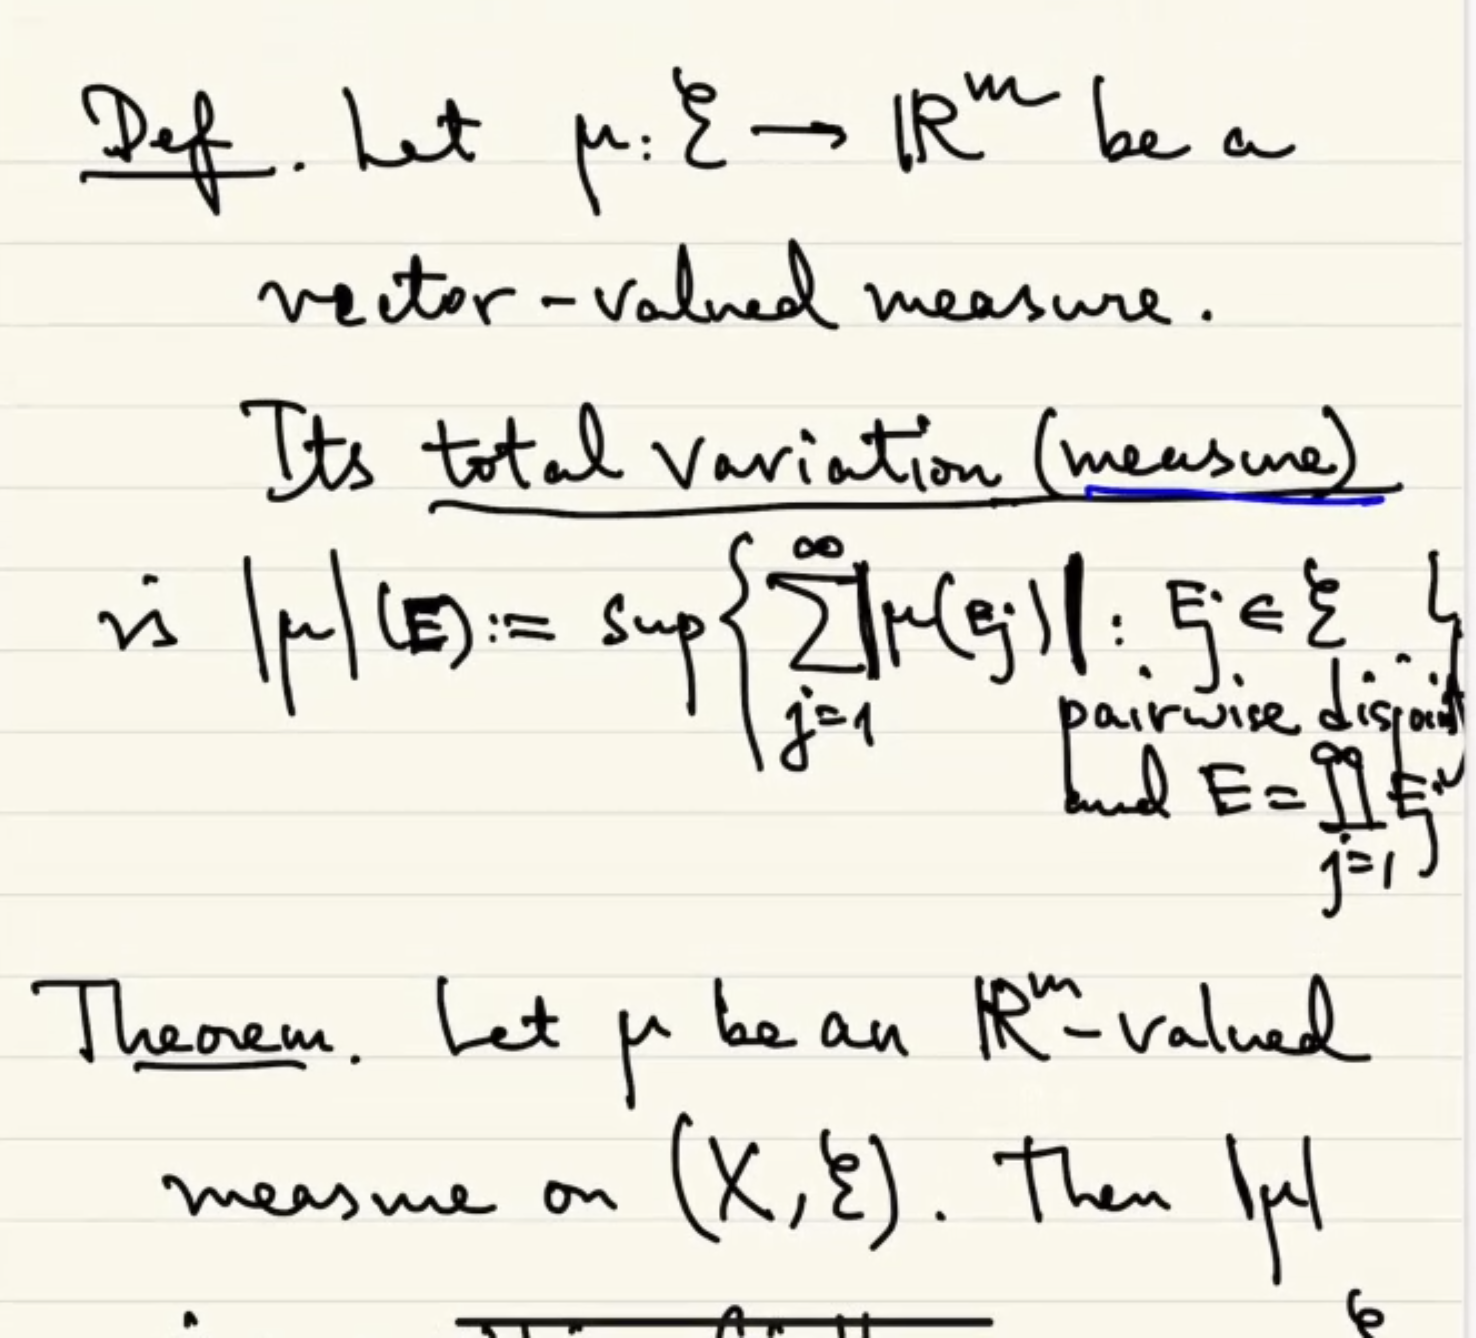 Def. Let μ: ℰ → ℝᵐ be a
vector-valued measure.
Its total variation (measure)
is |μ|(E) := sup{ ∑_{j=1}^{∞} |μ(Ej)| : Ej ∈ ℰ }
pairwise disjoint
and E = ∐_{j=1}^{∞} Ej
Theorem. Let μ be an ℝᵐ-valued
measure on (X, ℰ). Then |μ|